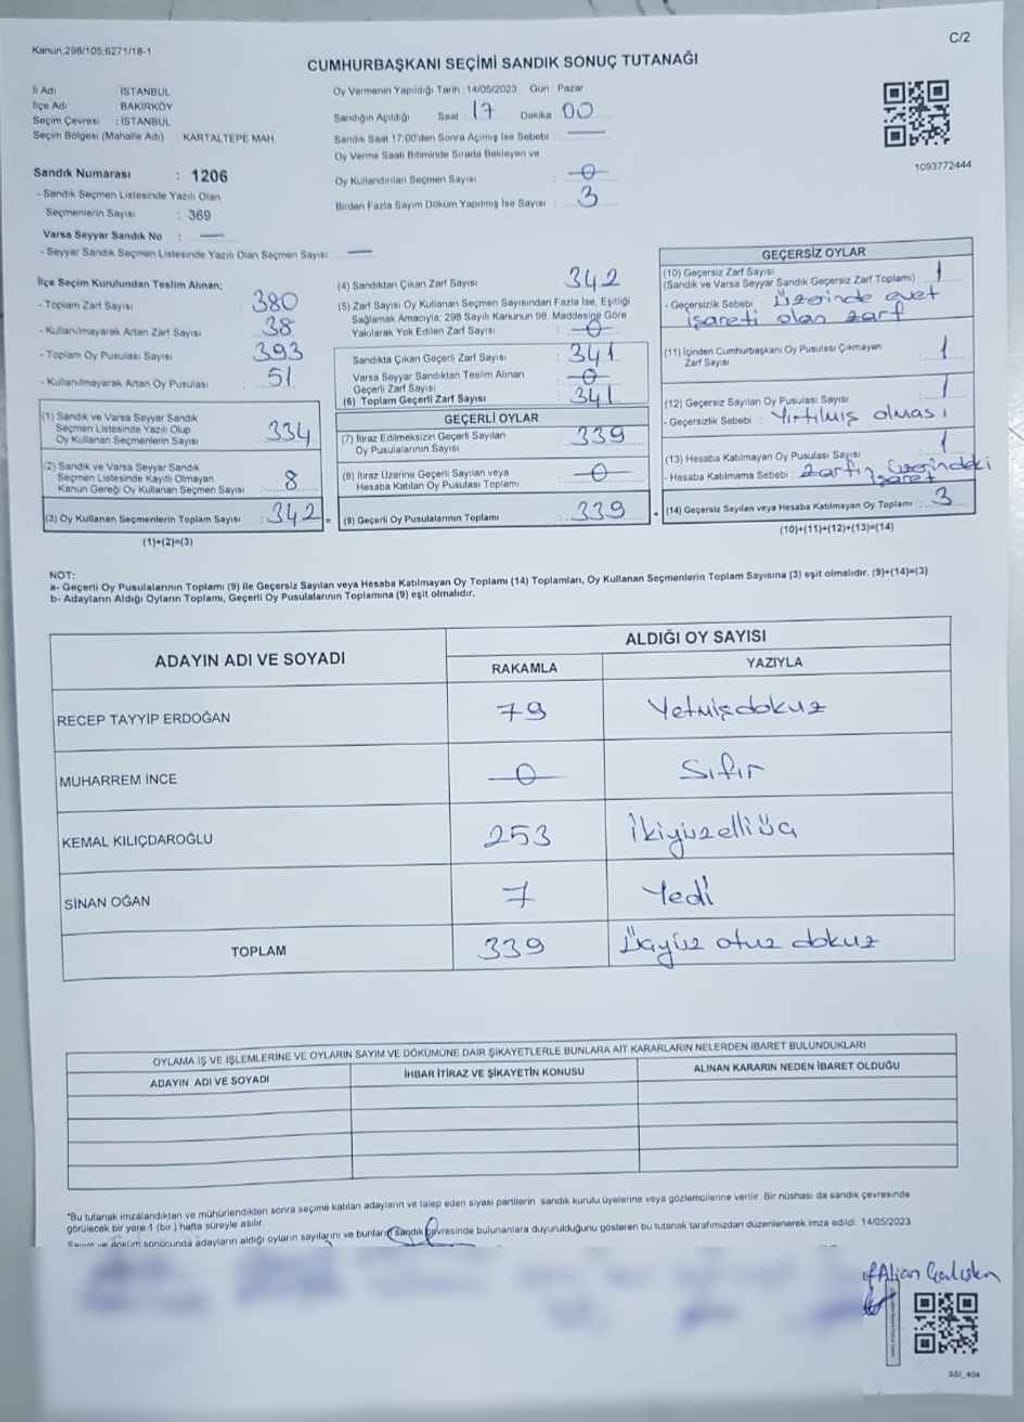 Kanun,298/105;6271/18-1
C/2
CUMHURBAŞKANI SEÇİMİ SANDIK SONUÇ TUTANAĞI
İl Adı : İSTANBUL
İlçe Adı : BAKIRKÖY
Seçim Çevresi : İSTANBUL
Seçim Bölgesi (Mahalle Adı) KARTALTEPE MAH.
Oy Vermenin Yapıldığı Tarih :14/05/2023 Gün: Pazar
Sandığın Açıldığı Saat : 17 Dakika : 00
Sandık Saat 17:00'den Sonra Açılmış İse Sebebi : —
Oy Verme Saati Bitiminde Sırada Bekleyen ve
Oy Kullandırılan Seçmen Sayısı : 0
Birden Fazla Sayım Döküm Yapılmış İse Sayısı : 3
1093772444
Sandık Numarası : 1206
- Sandık Seçmen Listesinde Yazılı Olan
Seçmenlerin Sayısı : 369
Varsa Seyyar Sandık No : —
- Seyyar Sandık Seçmen Listesinde Yazılı Olan Seçmen Sayısı: —
İlçe Seçim Kurulundan Teslim Alınan;
- Toplam Zarf Sayısı : 380
- Kullanılmayarak Artan Zarf Sayısı : 38
- Toplam Oy Pusulası Sayısı : 393
- Kullanılmayarak Artan Oy Pusulası : 51
(1) Sandık ve Varsa Seyyar Sandık
Seçmen Listesinde Yazılı Olup
Oy Kullanan Seçmenlerin Sayısı : 334
(2) Sandık ve Varsa Seyyar Sandık
Seçmen Listesinde Kayıtlı Olmayan
Kanun Gereği Oy Kullanan Seçmen Sayısı : 8
(3) Oy Kullanan Seçmenlerin Toplam Sayısı : 342
(1)+(2)=(3)
(4) Sandıktan Çıkan Zarf Sayısı : 342
(5) Zarf Sayısı Oy Kullanan Seçmen Sayısından Fazla İse, Eşitliği
Sağlamak Amacıyla; 298 Sayılı Kanunun 98. Maddesine Göre
Yakılarak Yok Edilen Zarf Sayısı : 0
Sandıkta Çıkan Geçerli Zarf Sayısı : 341
Varsa Seyyar Sandıktan Teslim Alınan
Geçerli Zarf Sayısı : 0
(6) Toplam Geçerli Zarf Sayısı : 341
GEÇERLİ OYLAR
(7) İtiraz Edilmeksizin Geçerli Sayılan
Oy Pusulalarının Sayısı : 339
(8) İtiraz Üzerine Geçerli Sayılan veya
Hesaba Katılan Oy Pusulası Toplamı : 0
= (9) Geçerli Oy Pusulalarının Toplamı : 339
GEÇERSİZ OYLAR
(10) Geçersiz Zarf Sayısı
(Sandık ve Varsa Seyyar Sandık Geçersiz Zarf Toplamı) : 1
- Geçersizlik Sebebi : üzerinde evet
işareti olan zarf
(11) İçinden Cumhurbaşkanı Oy Pusulası Çıkmayan
Zarf Sayısı : 1
(12) Geçersiz Sayılan Oy Pusulası Sayısı : 1
- Geçersizlik Sebebi : Yırtılmış olması
(13) Hesaba Katılmayan Oy Pusulası Sayısı : 1
- Hesaba Katılmama Sebebi : zarfın üzerindeki
işaret
+ (14) Geçersiz Sayılan veya Hesaba Katılmayan Oy Toplamı : 3
(10)+(11)+(12)+(13)=(14)
NOT:
a- Geçerli Oy Pusulalarının Toplamı (9) ile Geçersiz Sayılan veya Hesaba Katılmayan Oy Toplamı (14) Toplamları, Oy Kullanan Seçmenlerin Toplam Sayısına (3) eşit olmalıdır. (9)+(14)=(3)
b- Adayların Aldığı Oyların Toplamı, Geçerli Oy Pusulalarının Toplamına (9) eşit olmalıdır.
ADAYIN ADI VE SOYADI
ALDIĞI OY SAYISI
RAKAMLA YAZIYLA
RECEP TAYYİP ERDOĞAN 79 Yetmişdokuz
MUHARREM İNCE 0 Sıfır
KEMAL KILIÇDAROĞLU 253 İkiyüzelliüç
SİNAN OĞAN 7 Yedi
TOPLAM 339 Üçyüz otuz dokuz
OYLAMA İŞ VE İŞLEMLERİNE VE OYLARIN SAYIM VE DÖKÜMÜNE DAİR ŞİKAYETLERLE BUNLARA AİT KARARLARIN NELERDEN İBARET BULUNDUKLARI
ADAYIN ADI VE SOYADI İHBAR İTİRAZ VE ŞİKAYETİN KONUSU ALINAN KARARIN NEDEN İBARET OLDUĞU
*Bu tutanak imzalandıktan ve mühürlendikten sonra seçime katılan adayların ve talep eden siyasi partilerin sandık kurulu üyelerine veya gözlemcilerine verilir. Bir nüshası da sandık çevresinde
görülecek bir yere 1 (bir) hafta süreyle asılır.
Sayım ve döküm sonucunda adayların aldığı oyların sayılarını ve bunların sandık çevresinde bulunanlara duyurulduğunu gösteren bu tutanak tarafımızdan düzenlenerek imza edildi. 14/05/2023
SSI_404